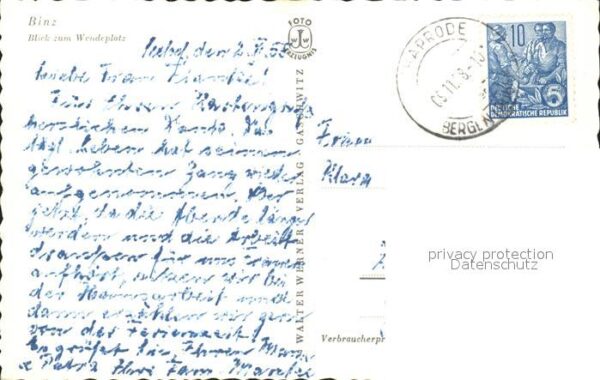 Binz
Blick zum Wendeplatz
FOTO
ERZEUGNIS
den 2. 58
Liebe Frau
Für Ihren Kartengruß
herzlichen Dank. Das
tägl. Leben hat seinen
gewohnten Gang wieder
aufgenommen. Aber
jetzt, da die Abende länger
werden und die Arbeit
draußen für uns Frauen
aufhört, sitzen wir bei
der Hausarbeit und
dann erzählen wir gern
von der Ferienzeit!
Es grüßt Sie, Ihren Mann
Petra Ihre Fam.
WALTER WERNER · VERLAG · GASCHWITZ
Frau
Klara
Verbraucherpr
10
5
DEUTSCHE
DEMOKRATISCHE REPUBLIK
privacy protection
Datenschutz